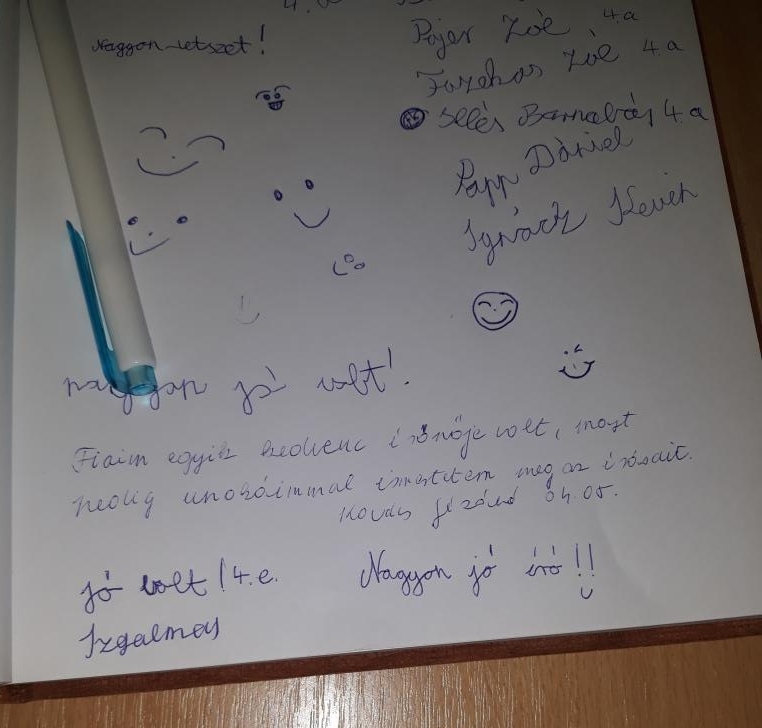 Nagyon tetszet!
Pájer Zoé 4.a
Fazekas Zoé 4 a
Illés Barnabás 4.a
Papp Dániel
Ignácz Kevin
nagyon jó volt!
Fiaim egyik kedvenc írónője volt, most
pedig unokáimmal ismertetem meg az írásait.
Kovács 04.05.
jó volt! 4.e.
Nagyon jó író!!
Izgalmas